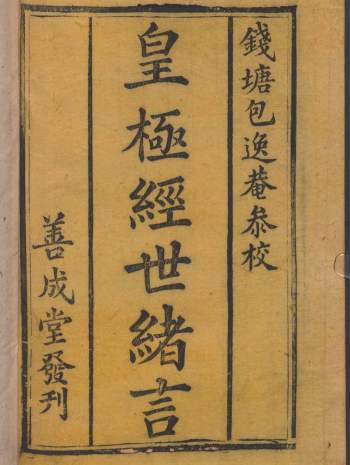 錢塘包逸菴叅校
皇極經世緒言
善成堂發刊